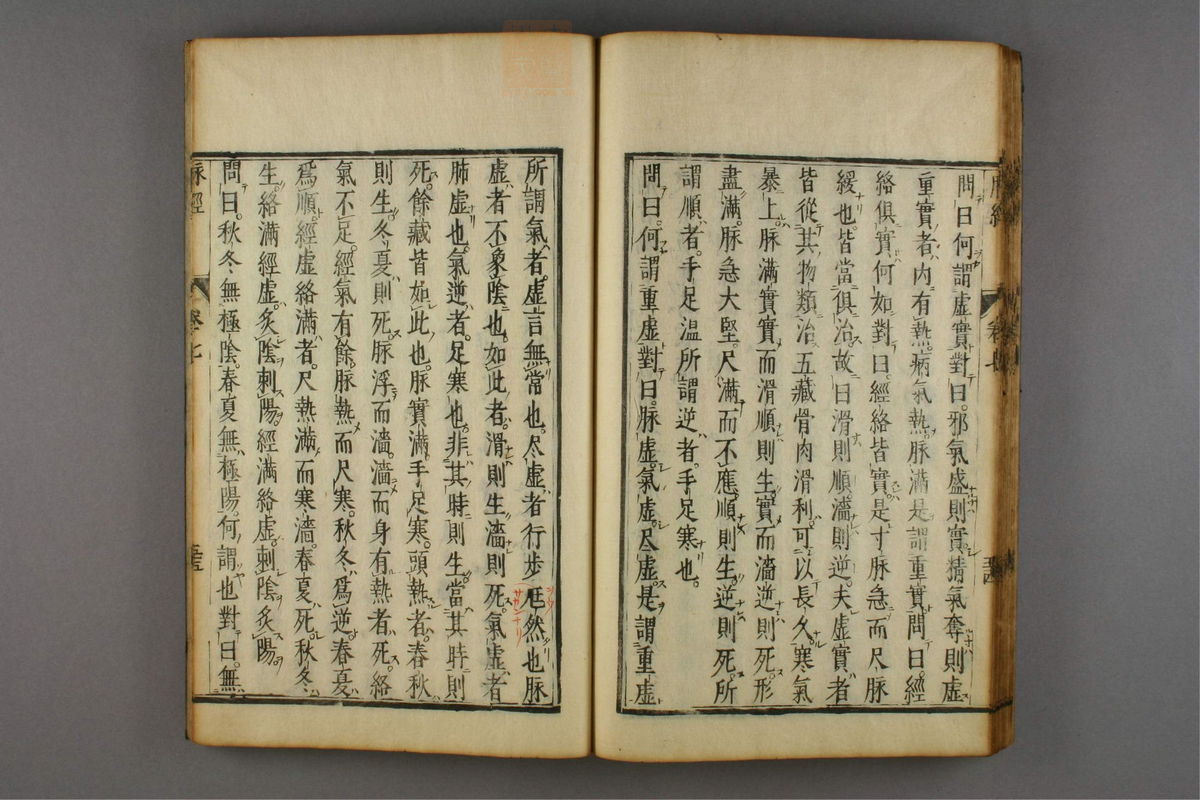 問曰何謂虛實對曰邪氣盛則實精氣奪則虛
重實者內有熱病氣熱脉滿是謂重實問曰經
絡俱實何如對曰經絡皆實是寸脉急而尺脉
緩也皆當俱治故曰滑則順濇則逆夫虛實者
皆從其物類治五藏骨肉滑利可以長久寒氣
暴上脉滿實實而滑順則生實而濇逆則死形
盡滿脉急大堅尺滿而不應順則生逆則死所
謂順者手足温所謂逆者手足寒也
問曰何謂重虛對曰脉虛氣虛尺虛是謂重虛
所謂氣者虛言無常也尽虛者行步尫然也脉
虛者不象陰也如此者滑則生濇則死氣虛者
肺虛也氣逆者足寒也非其時則生當其時則
死餘藏皆如此也脉實滿手足寒頭熱者春秋
則生冬夏則死脉浮而濇濇而身有熱者死絡
氣不足經氣有餘脉熱而尺寒秋冬爲逆春夏
爲順經虛絡滿者尺熱滿而寒濇春夏死秋冬
生絡滿經虛灸陰刺陽經滿絡虛刺陰灸陽
問曰秋冬無極陰春夏無極陽何謂也對曰無
脉經 卷七